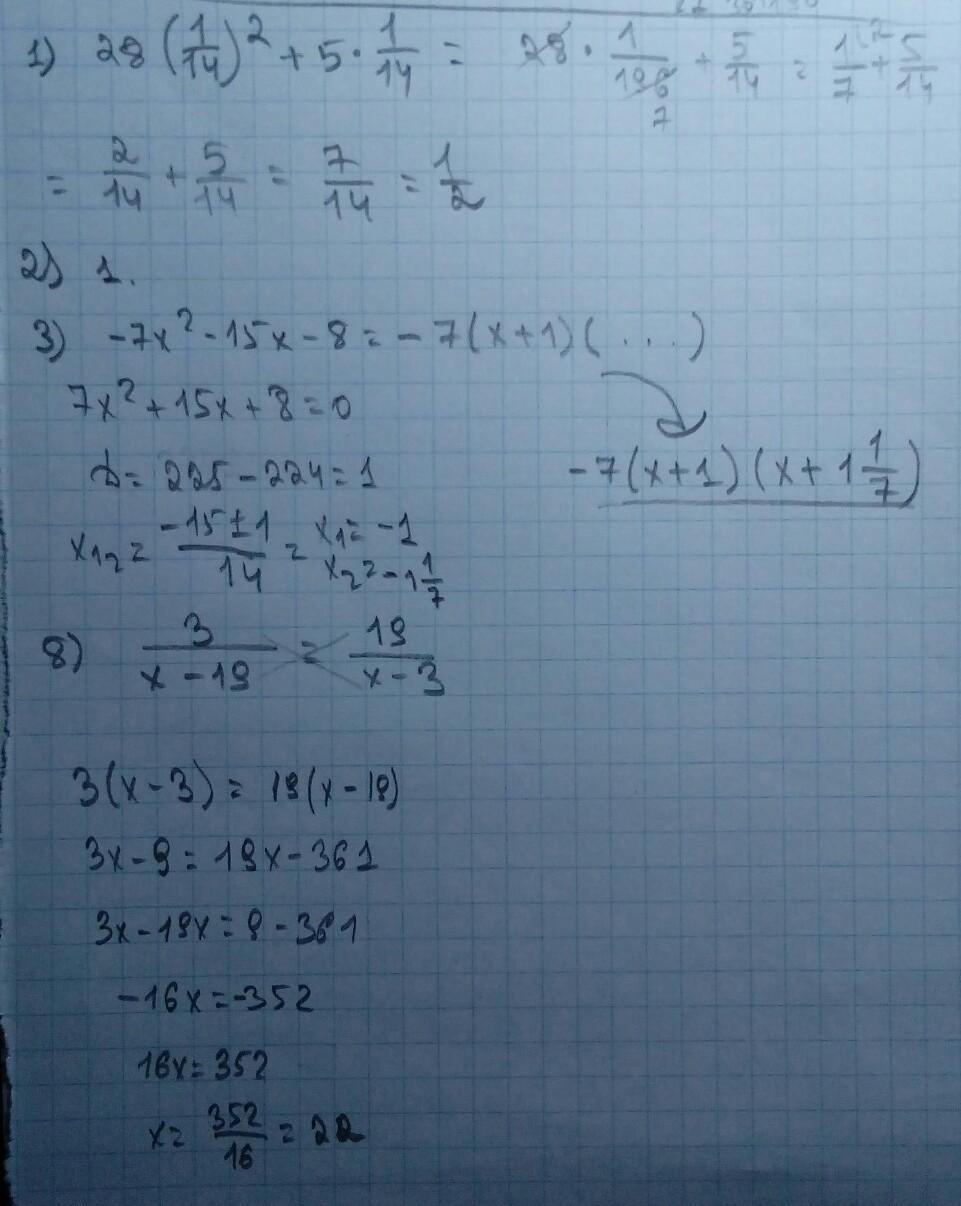 1) 28 (1/14)² + 5 · 1/14 = 28 · 1/196 + 5/14 = 1/7 + 5/14
7
= 2/14 + 5/14 = 7/14 = 1/2
2) 1.
3) -7x² - 15x - 8 = -7(x+1)(...)
7x² + 15x + 8 = 0
-7(x+1)(x+1 1/7)
D = 225 - 224 = 1
x₁₂ = (-15±1)/14 = x₁ = -1
x₂ = -1 1/7
8) 3/(x-19) = 19/(x-3)
3(x-3) = 19(x-19)
3x-9 = 19x-361
3x-19x = 9-361
-16x = -352
16x = 352
x = 352/16 = 22